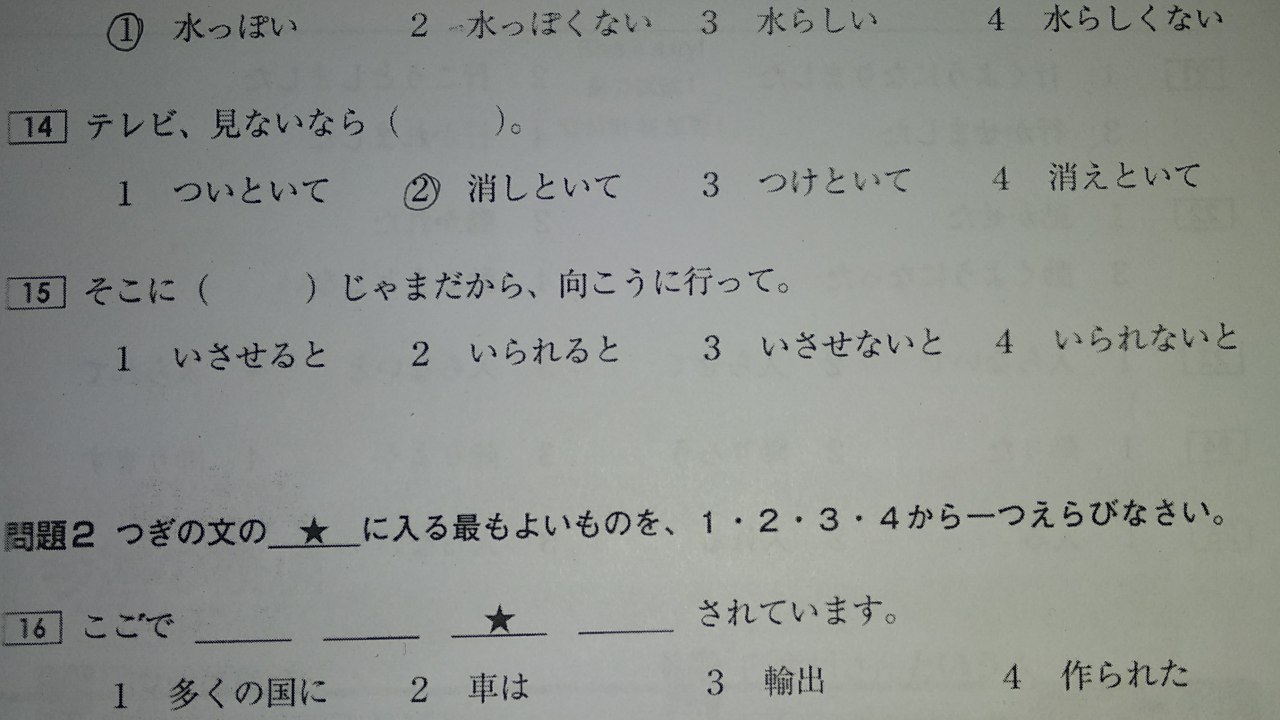 ① 水っぽい 2 水っぽくない 3 水らしい 4 水らしくない
14 テレビ、見ないなら（　　）。
1 ついといて ② 消しといて 3 つけといて 4 消えといて
15 そこに（　　）じゃまだから、向こうに行って。
1 いさせると 2 いられると 3 いさせないと 4 いられないと
問題2 つぎの文の ★ に入る最もよいものを、1・2・3・4から一つえらびなさい。
16 ここで ＿＿ ＿＿ ★ ＿＿ されています。
1 多くの国に 2 車は 3 輸出 4 作られた